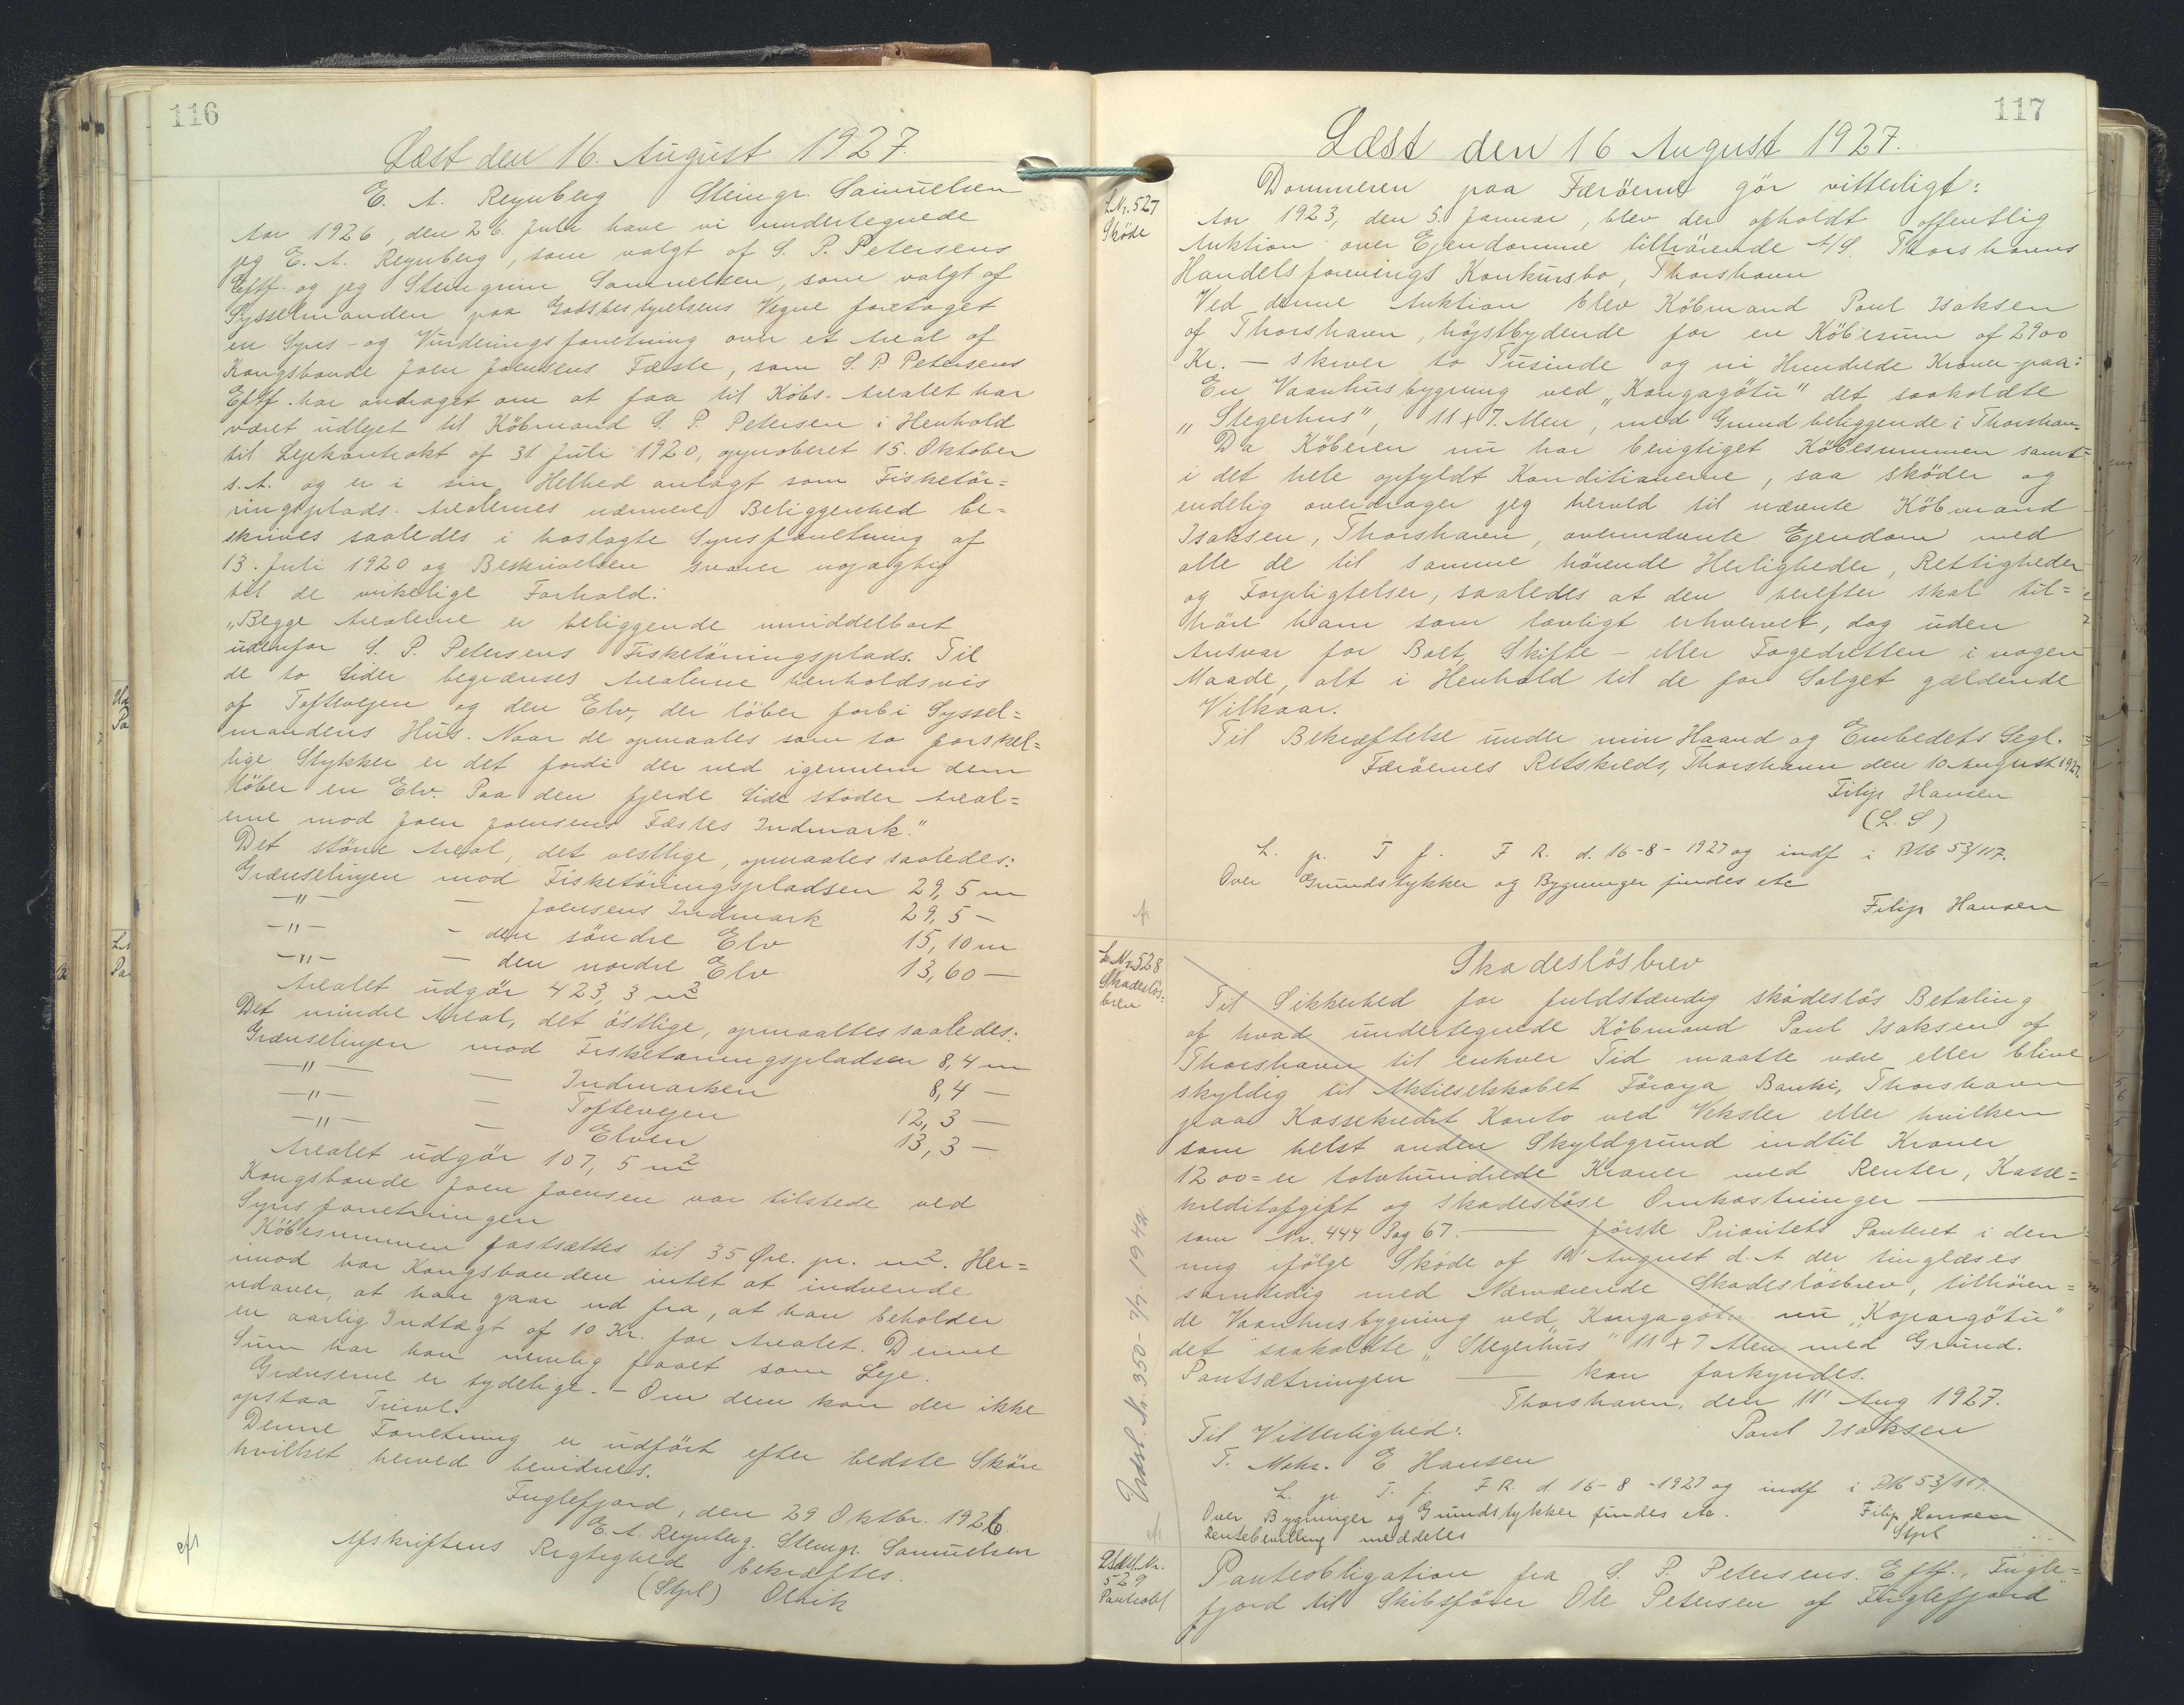 116
Læst den 16. August 1927.
E. A. Reynberg Steingr. Samuelsen
Aar 1926, den 26. Juli have vi undertegnede
jeg E. A. Reynberg, som valgt af S. P. Petersens
Eftf. og jeg Steingrim Samuelsen, som valgt af
Sysselmanden paa Godsbestyrelsens Vegne foretaget
en Syns- og Vurderingsforretning over et Areal af
Kongsbonde Joen Joensens Fæste, som S. P. Petersens
Eftf. har andraget om at faa til Købs. Arealet har
været udlejet til Köbmand S. P. Petersen i Henhold
til Lejekontrakt af 31 Juli 1920, approberet 15. Oktober
s. A. og er i sin Helhed anlagt som Fisketör=
ringsplads. Arealernes nærmere Beliggenhed be=
skrives saaledes i haslagte Synsforretning af
13. Juli 1920 og Beskrivelsen svarer nöjagtig
til de virkelige Forhold:
„Begge Arealerne er beliggende umiddelbart
udenfor S. P. Petersens Fisketörringsplads. Til
de to Sider begrænses Arealerne henholdsvis
af Toftevejen og den Elv, der löber forbi Syssel=
mandens Hus. Naar de opmaales som to forskel=
lige Stykker er det fordi der ned igennem dem
löber en Elv. Paa den fjerde Side støder Areal=
erne mod Joen Joensens Fæstes Indmark."
Det större Areal, det vestlige, opmaales saaledes:
Grænselinjen mod Fisketörringspladsen 29,5 m
—"— — Joensens Indmark 29,5 —
—"— — den söndre Elv 15,10 m
—"— — den nordre Elv 13,60 —
Arealet udgör 423,3 m²
Det mindre Areal, det östlige, opmaaltes saaledes:
Grænselinjen mod Fisketørringspladsen 8,4 m
—"— — Indmarken 8,4 —
—"— — Toftevejen 12,3 —
—"— — Elven 13,3 —
Arealet udgör 107,5 m²
Kongsbonde Joen Joensen var tilstede ved
Synsforretningen
Köbesummen fastsættes til 35 Øre. pr. m². Her=
imod har Kongsbonden intet at indvende
udover, at han gaar ud fra, at han beholder
en aarlig Indtægt af 10 Kr. for Arealet. Denne
Sum har han nemlig faaet som Leje.
Grænserne er tydelige. – Om dem kan der ikke
opstaa Tvivl.
Denne Forretning er udført efter bedste Skön
hvilket herved bevidnes.
Fuglefjord, den 29 Oktbr. 1926.
E. A. Reynberg. Steingr. Samuelsen
Afskriftens Rigtighed bekræftes.
(Stpl)
117
Læst den 16 August 1927.
L.Nr. 527
Sköde
Dommeren paa Færöerne gör vitterligt:
Aar 1923, den 5. Januar, blev der afholdt offentlig
Auktion over Ejendomme tilhörende A/S. Thorshavns
Handelsforenings Konkursbo, Thorshavn
Ved denne Auktion blev Köbmand Poul Isaksen
af Thorshavn, højstbydende for en Köbesum af 2900
Kr. – skriver to Tusinde og ni Hundrede Kroner – paa:
En Vaanhusbygning ved „Kongagötu" det saakaldte
„Stegerhus", 11 x 7. Alen, med Grund beliggende i Thorshavn.
Da Köberen nu har berigtiget Köbesummen samt
i det hele opfyldt Konditionerne, saa sköder og
endelig overdrager jeg herved til nævnte Köbmand
Isaksen, Thorshavn, ovennævnte Ejendom med
alle de til samme hörende Herligheder, Rettigheder
og Forpligtelser, saaledes at den herefter skal til=
höre ham som lovligt erhvervet, dog uden
Ansvar for Boet, Skifte- eller Fogedretten i nogen
Maade, alt i Henhold til de for Salget gældende
Vilkaar.
Til Bekræftelse under min Haand og Embedets Segl.
Færöernes Retskreds, Thorshavn den 10 August 1927.
Filip Hansen
(L. S)
L. p. T f. F R. d. 16-8-1927 og indf i PMb 53/117.
Over Grundstykker og Bygninger findes etc
Filip Hansen
L Nr 528
Skadeslös=
brev
Skadeslösbrev
Til Sikkerhed for fuldstændig skadeslös Betaling
af hvad undertegnede Köbmand Poul Isaksen af
Thorshavn til enhver Tid maatte være eller blive
skyldig til Aktieselskabet Föroya Banki, Thorshavn
paa Kassekredit Konto ved Veksler eller hvilken
som helst anden Skyldgrund indtil Kroner
1200 = er tolvhundrede Kroner med Renter, Kasse=
kreditafgift og skadeslöse Omkostninger —
som Nr. 444 Pag 67. — første Prioritets Panteret i den
mig ifölge Sköde af 10' August d. A der tinglæses
samtidig med Nærværende Skadeslösbrev, tilhören=
de Vaanhusbygning ved „Kongagötu nu „Kopargötu"
det saakaldte „Stegerhus" 11 x 7 Alen med Grund.
Pantsætningen — kan forkyndes.
Thorshavn, den 11' Aug 1927.
Til Vitterlighed: Poul Isaksen
T. Mohr. E Hansen
L. p. T. f. F R. d 16-8-1927 og indf i PMb 53/117.
Over Bygninger og Grundstykker findes etc. Filip Hansen
Rentebevilling meddeles Stpl
Udsl. Nr. 350 - 7/7 1942.
529
Panteobl
Panteobligation fra S. P. Petersens. Eftf., Fugle=
fjord til Skibsförer Ole Petersen af Fuglefjord